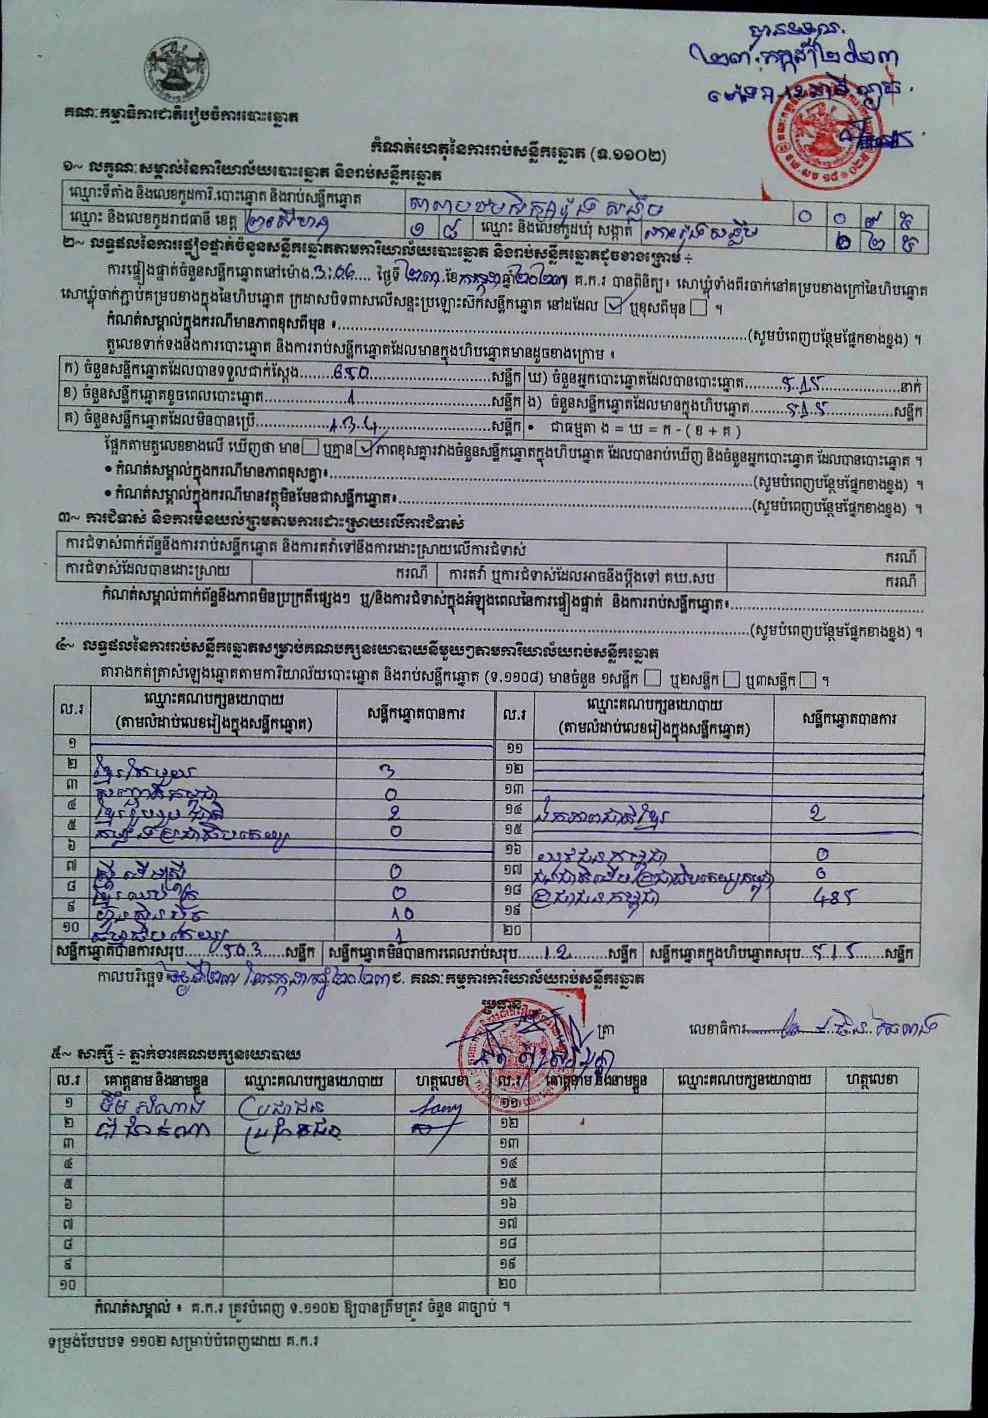 បានទទួល
២៣ កក្កដា ២០២៣
គណៈកម្មាធិការជាតិរៀបចំការបោះឆ្នោត
កំណត់ហេតុនៃការរាប់សន្លឹកឆ្នោត (ទ.១១០២)
១~ លក្ខណៈសម្គាល់នៃការិយាល័យបោះឆ្នោត និងរាប់សន្លឹកឆ្នោត
ឈ្មោះទីតាំង និងលេខកូដការិ.បោះឆ្នោត និងរាប់សន្លឹកឆ្នោត ០ ០ ៩ ៥
ឈ្មោះ និងលេខកូដរាជធានី ខេត្ត ព្រះសីហនុ ១ ៨ ឈ្មោះ និងលេខកូដឃុំ សង្កាត់ ២ ២ ៥
២~ លទ្ធផលនៃការផ្ទៀងផ្ទាត់ចំនួនសន្លឹកឆ្នោតតាមការិយាល័យបោះឆ្នោត និងរាប់សន្លឹកឆ្នោតដូចខាងក្រោម ÷
ការផ្ទៀងផ្ទាត់ចំនួនសន្លឹកឆ្នោតនៅម៉ោង 3:06 ថ្ងៃទី ២៣ ខែ កក្កដា ឆ្នាំ ២០២៣ គ.ក.រ បានពិនិត្យ៖ សោឃ្មុំទាំងពីរចាក់នៅគម្របខាងក្រៅនៃហិបឆ្នោត
សោឃ្មុំចាក់ភ្ជាប់គម្របខាងក្នុងនៃហិបឆ្នោត ក្រដាសបិទពាសលើសន្ទះប្រឡោះស៊កសន្លឹកឆ្នោត នៅដដែល ☑ ឬខុសពីមុន ☐ ។
កំណត់សម្គាល់ក្នុងករណីមានភាពខុសពីមុន ៖ (សូមបំពេញបន្ថែមផ្នែកខាងខ្នង) ។
តួលេខទាក់ទងនឹងការបោះឆ្នោត និងការរាប់សន្លឹកឆ្នោតដែលមានក្នុងហិបឆ្នោតមានដូចខាងក្រោម ៖
ក) ចំនួនសន្លឹកឆ្នោតដែលបានទទួលជាក់ស្តែង 650 សន្លឹក ឃ) ចំនួនអ្នកបោះឆ្នោតដែលបានបោះឆ្នោត 515 នាក់
ខ) ចំនួនសន្លឹកឆ្នោតខូចពេលបោះឆ្នោត 1 សន្លឹក ង) ចំនួនសន្លឹកឆ្នោតដែលមានក្នុងហិបឆ្នោត 515 សន្លឹក
គ) ចំនួនសន្លឹកឆ្នោតដែលមិនបានប្រើ 134 សន្លឹក • ជាធម្មតា ង = ឃ = ក - ( ខ + គ )
ផ្អែកតាមតួលេខខាងលើ ឃើញថា មាន ☐ ឬគ្មាន ☑ ភាពខុសគ្នារវាងចំនួនសន្លឹកឆ្នោតក្នុងហិបឆ្នោត ដែលបានរាប់ឃើញ និងចំនួនអ្នកបោះឆ្នោត ដែលបានបោះឆ្នោត ។
• កំណត់សម្គាល់ក្នុងករណីមានភាពខុសគ្នា៖ (សូមបំពេញបន្ថែមផ្នែកខាងខ្នង) ។
• កំណត់សម្គាល់ក្នុងករណីមានវត្ថុមិនមែនជាសន្លឹកឆ្នោត៖ (សូមបំពេញបន្ថែមផ្នែកខាងខ្នង) ។
៣~ ការជំទាស់ និងការមិនយល់ព្រមតាមការដោះស្រាយលើការជំទាស់
ការជំទាស់ពាក់ព័ន្ធនឹងការរាប់សន្លឹកឆ្នោត និងការតវ៉ាទៅនឹងការដោះស្រាយលើការជំទាស់ ករណី
ការជំទាស់ដែលបានដោះស្រាយ ករណី ការតវ៉ា ឬការជំទាស់ដែលអាចនឹងប្តឹងទៅ គឃ.សប ករណី
កំណត់សម្គាល់ពាក់ព័ន្ធនឹងភាពមិនប្រក្រតីផ្សេងៗ ឬ/និងការជំទាស់ក្នុងអំឡុងពេលនៃការផ្ទៀងផ្ទាត់ និងការរាប់សន្លឹកឆ្នោត៖
(សូមបំពេញបន្ថែមផ្នែកខាងខ្នង) ។
៤~ លទ្ធផលនៃការរាប់សន្លឹកឆ្នោតសម្រាប់គណបក្សនយោបាយនីមួយៗតាមការិយាល័យរាប់សន្លឹកឆ្នោត
តារាងកត់ត្រាសំឡេងឆ្នោតតាមការិយាល័យបោះឆ្នោត និងរាប់សន្លឹកឆ្នោត (ទ.១១០៨) មានចំនួន ១សន្លឹក ☐ ឬ២សន្លឹក ☐ ឬ៣សន្លឹក ☐ ។
ល.រ ឈ្មោះគណបក្សនយោបាយ (តាមលំដាប់លេខរៀងក្នុងសន្លឹកឆ្នោត) សន្លឹកឆ្នោតបានការ ល.រ ឈ្មោះគណបក្សនយោបាយ (តាមលំដាប់លេខរៀងក្នុងសន្លឹកឆ្នោត) សន្លឹកឆ្នោតបានការ
១ ១១
២ ខ្មែរតែមួយ 3 ១២
៣ សញ្ជាតិកម្ពុជា 0 ១៣
៤ ខ្មែររួបរួមជាតិ 2 ១៤ ឯកភាពជាតិខ្មែរ 2
៥ 0 ១៥
៦ ១៦ យុវជនកម្ពុជា 0
៧ ស្ត្រីដើម្បីស្ត្រី 0 ១៧ ជនជាតិដើមប្រជាធិបតេយ្យកម្ពុជា 0
៨ ខ្មែរឈប់ក្រ 0 ១៨ ប្រជាជនកម្ពុជា 485
៩ ហ្វ៊ុនស៊ិនប៉ិច 10 ១៩
១០ ធម្មាធិបតេយ្យ 1 ២០
សន្លឹកឆ្នោតបានការសរុប 503 សន្លឹក សន្លឹកឆ្នោតមិនបានការពេលរាប់សរុប 12 សន្លឹក សន្លឹកឆ្នោតក្នុងហិបឆ្នោតសរុប 515 សន្លឹក
កាលបរិច្ឆេទ ថ្ងៃទី២៣ ខែកក្កដា ឆ្នាំ២០២៣ ៩. គណៈកម្មការការិយាល័យរាប់សន្លឹកឆ្នោត
ប្រធាន
ត្រា លេខាធិការ
៥~ សាក្សី ÷ ភ្នាក់ងារគណបក្សនយោបាយ
ល.រ គោត្តនាម និងនាមខ្លួន ឈ្មោះគណបក្សនយោបាយ ហត្ថលេខា ល.រ គោត្តនាម និងនាមខ្លួន ឈ្មោះគណបក្សនយោបាយ ហត្ថលេខា
១ ទឹម សំណាង ប្រជាជន ១១
២ ប្រជាជន ១២
៣ ១៣
៤ ១៤
៥ ១៥
៦ ១៦
៧ ១៧
៨ ១៨
៩ ១៩
១០ ២០
កំណត់សម្គាល់ ៖ គ.ក.រ ត្រូវបំពេញ ទ.១១០២ ឱ្យបានត្រឹមត្រូវ ចំនួន ៣ច្បាប់ ។
ទម្រង់បែបបទ ១១០២ សម្រាប់បំពេញដោយ គ.ក.រ